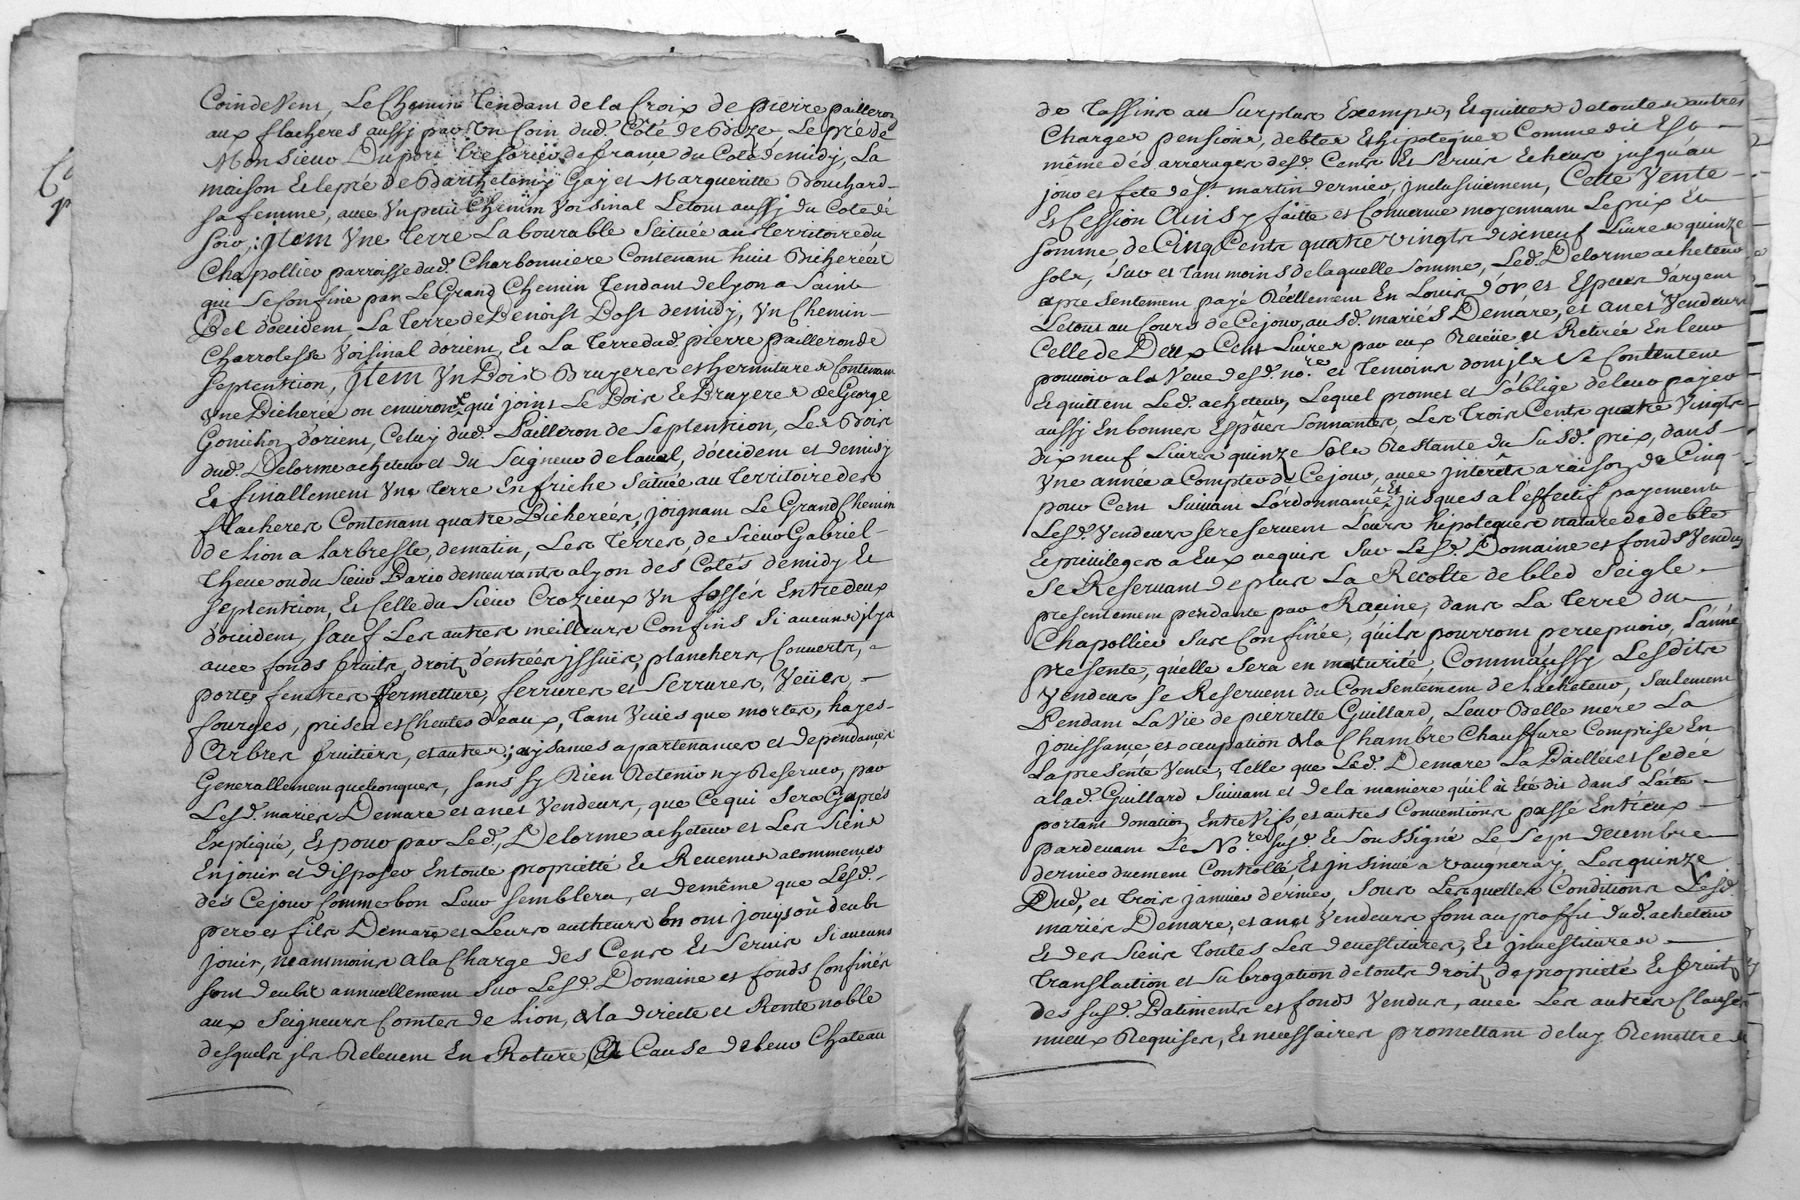 Coin de Vent, Le Chemin Tendant de la Croix de pierre pailleron
aux flacheres aussy par Un Coin dud. Côté de Bize, Le pré de
Monsieur Duport tresorier de france du Coté de midy, La
maison et le pré de Barthelemy Gay et Margueritte Bouchard
sa femme, avec Un petit Chemin Voisinal Letout aussy du Coté de
soir, jtem Une Terre Labourable Scituée au Territoire du
Chapollier parroisse dud. Charbonniere Contenant huit Bicherées
qui se Confine par Le Grand Chemin Tendant de lyon a Saint
Bel d'occident, La Terre de Benoist Dost de midy, Un Chemin
Charrolesse Voisinal d'orient, Et La Terre dud. pierre pailleron de
septentrion, jtem Un Bois Bruyeres et hermitures Contenant
Une Bicherée ou environ qui joint Le Bois Et Bruyeres de George
Gonichon d'orient, Celuy dud. Pailleron de Septentrion, Les Bois
dud. Delorme acheteur et du Seigneur de laval, d'occident et de midy
Et finallement Une Terre En friche Scituée au Territoire des
flacheres Contenant quatre Bicherées, joignant Le Grand Chemin
de Lion a Larbresle, de matin, Les Terres, de Sieur Gabriel
Theve ou du Sieur Dario demeurants a lyon des Cotés de midy Et
septentrion, Et Celle du Sieur Crozieux Un fossés Entre deux
d'occident, sauf Les autres meilleurs Confins Si aucuns il y a
avec fonds fruits, droit d'entrées jssuës, planchers, Couverts,
portes fenetres fermetture, ferrures et Serrures, Veües,
sources, prises et Cheutes d'eaux, Tant Vives que mortes, hayes
Arbres fruitiers, et autres, aysances apartenances et dependances
Generallement quelconques, sans sy Rien Retenir ny Reserver, par
Lesd. mariés Demare et anet Vendeurs, que Cequi Sera Cy aprés
Expliqué, Et pour par Led. Delorme acheteur et Les Siens
En jouir et disposer En toute proprietté Et Revenus a commencer
dés Cejour Comme bon Leur Semblera, et de même que Lesd.
pere et fils Demare et Leurs autheurs En ont jouys où deub
jouir, neanmoins a la Charge des Cens Et Servis Si aucuns
sont deubt annuellement Sur Lesd. Domaine et fonds Confinés
aux Seigneurs Comtes de Lion, a la directe et Rente noble
desquels jls Relevent En Roture, a Cause de leur Chateau
de Tassins au Surplus Exempt, Et quittes de toutes autres
Charges pensions, debtes Et hipoteques Comme dit Est
même dés arrerages desd. Cens Et Servis Echeus jusqu'au
jour et fete de st. martin dernier, jnclusivement, Cette Vente
Et Cession Ainsy faitte et Convenue moyennant Le prix Et
somme, de Cinq Cents quatre vingts dixneuf Livres quinze
sols, Sur et Tant moins de laquelle Somme, Led. Delorme acheteur
a presentement payé Réellement En Louis d'or, et Especes d'argent
Letout au Cours de Cejour, au sd. mariés Demare, et anet Vendeurs
Celle de Deux Cent Livres par eux Receüe et Retirée En leur
pouvoir a la Veue desd. no.res et Temoins dont jls se Contentent
Et quittent Led. acheteur, Lequel promet et s'oblige de leur payer
aussy En bonnes Especes Sonnantes, Les Trois Cents quatre Vingts
dix neuf Livres quinze Sols Restante du Susd. prix, dans
Une année a Compter de Cejour, avec jnterêts a raison de Cinq
pour Cent Suivant L'ordonnance Et jusques a l'effectif payement
Lesd. Vendeurs se reservent Leurs hipoteques nature de debte
Et privileges a Eux acquis Sur Lesd. Domaine et fonds Vendus
Se Reservant de plus La Recolte de bled Seigle
presentement pendante par Racine, dans La Terre du
Chapollier Sus Confinée, qu'ils pourront percepvoir, L'année
presente, qu'elle Sera en maturité, Comm'aussy Lesdits
Vendeurs se Reservent du Consentement de Lacheteur, Seulement
Pendant La Vie de pierrette Guillard, Leur Belle mere La
jouissance et occupation de la Chambre Chauffure Comprise En
La presente Vente, Telle que Led. Demare La Baillée et Cedée
a lad. Guillard Suivant et de la maniere qu'il a été dit dans L'acte
portant donation Entre Vifs et autres Conventions passé Entr'eux
pardevant Le No.re Susd. Et Soussigné Le Sept decembre
dernier duement Controllé Et jnsinué a Vaugneray, Les quinze
Dud, et Trois janvier dernier, sous Lesquelles Conditions Lesd.
mariés Demare, et anet Vendeurs font au proffit dud. acheteur
Et des Siens Toutes Les devestitures, Et jnvestitures
Translaction et Subrogation de touts droit de propriété Et fruits
des susd. Batiments et fonds Vendus, avec Les autres Clauses
mieux Requises, Et necessaires promettant de luy Remettre